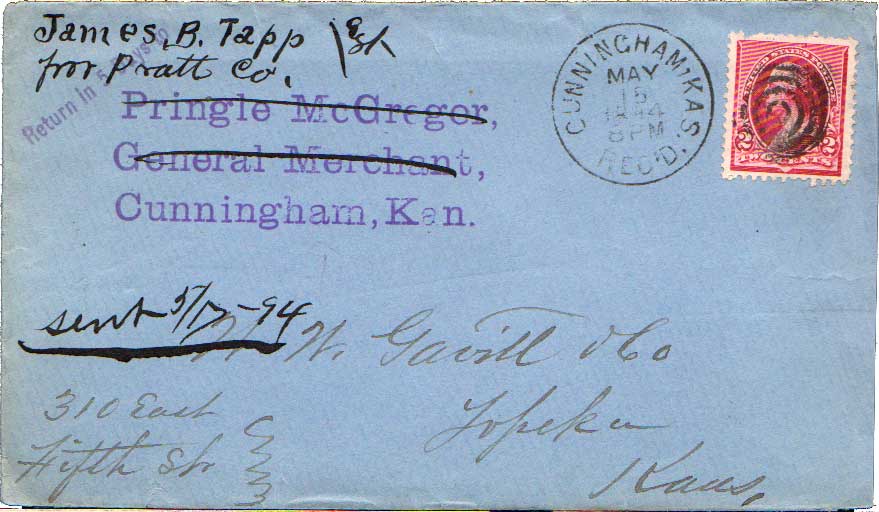 James B. Tapp
for Pratt Co.
Return in 5 Days to
Pringle McGregor,
General Merchant,
Cunningham, Kan.
CUNNINGHAM, KAS.
MAY
15
1894
8 PM
REC'D.
UNITED STATES POSTAGE
2 2
TWO CENTS
sent 5/17-94
W. W. Gavitt & Co
310 East
Fifth St
Topeka
Kans,